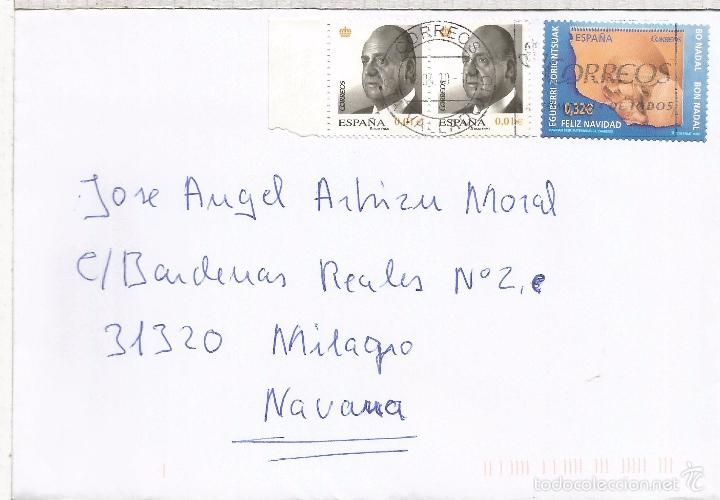 CORREOS
ESPAÑA
0,01€
CORREOS
ESPAÑA
0,01€
ESPAÑA
CORREOS
CORREOS
0,32€
FELIZ NAVIDAD
EGUBERRI ZORIONTSUAK
BO NADAL BON NADAL
Jose Angel Arbizu Moral
C/Bardenas Reales Nº2, e
31320 Milagro
Navarra
todocoleccion.net